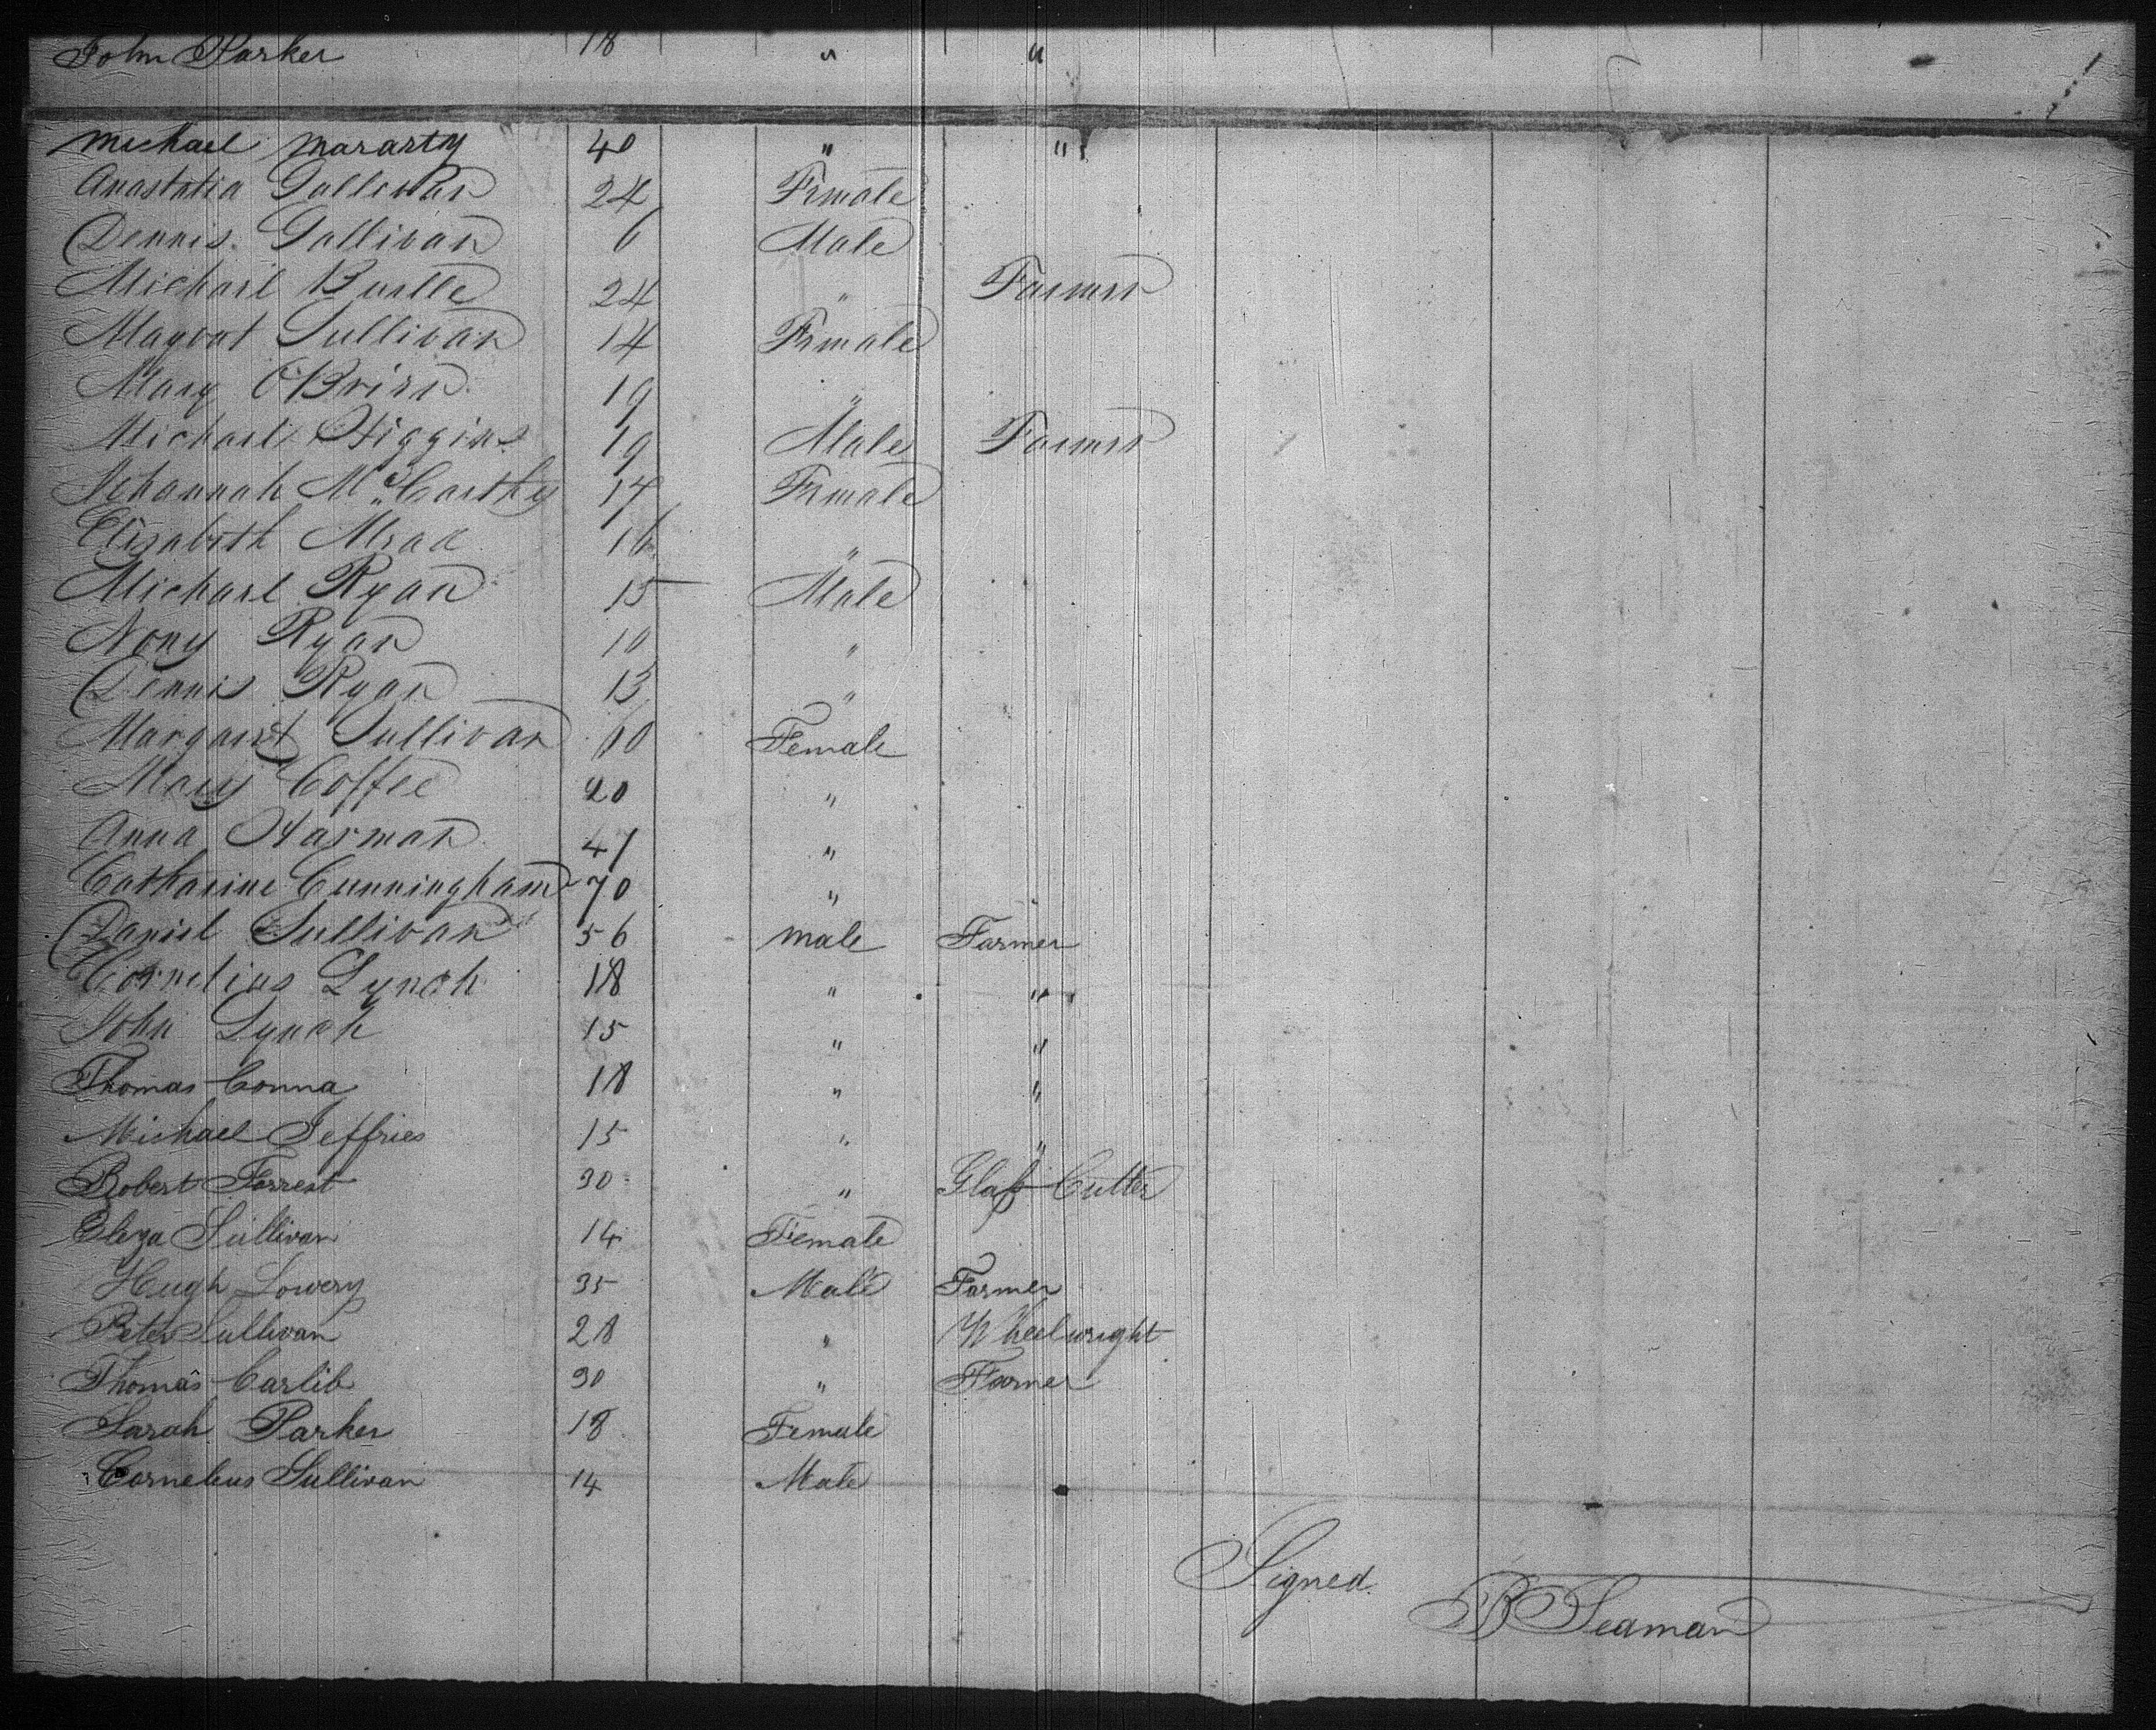 John Parker 18 " "
Michael Mararty 40 " "
Anastatia Sullivan 24 Female
Dennis Sullivan 6 Male
Michael 24 " Farmer
Magrat Sullivan 14 Female
Mary O'Brien 19 "
Michael Higgins 19 Male Farmer
Johannah McCarthy 17 Female
Elizabeth Mead 16 "
Michael Ryan 15 Male
Nony Ryan 10 "
Dennis Ryan 13 "
Margaret Sullivan 60 Female
Mary Coffee 20 "
Anna Harman 41 "
Catharine Cunningham 70 "
Daniel Sullivan 56 male Farmer
Cornelius Lynch 18 " "
John Lynch 15 " "
Thomas Conna 18 " "
Michael Jeffries 15 " "
Robert Forrest 30 " Glass Cutter
Eleza Sullivan 14 Female
Hugh Lowery 35 Male Farmer
Peter Sullivan 28 " Wheelwright
Thomas Carlib 30 " Farmer
Sarah Parker 18 Female
Cornelius Sullivan 14 Male
Signed.
B Seaman